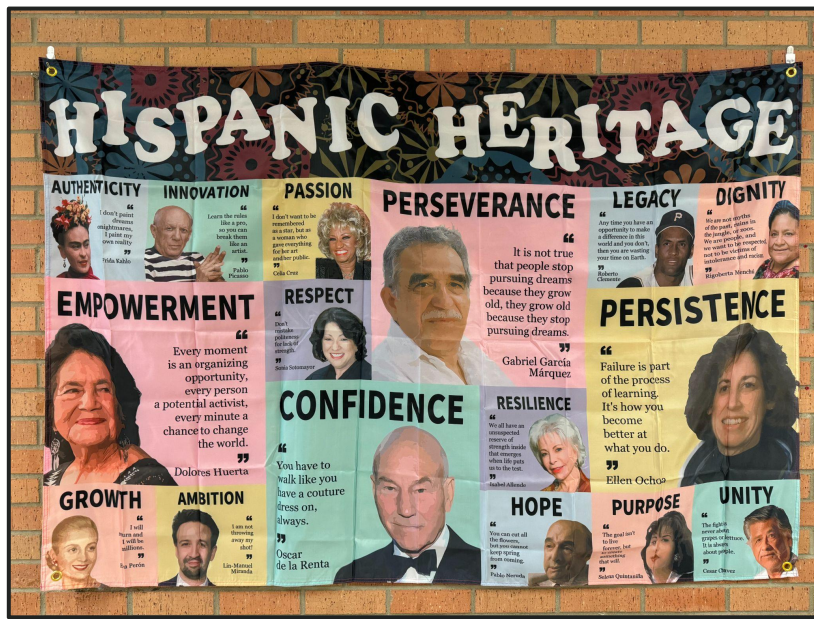 HISPANIC HERITAGE
AUTHENTICITY
“
I don't paint
dreams
nightmares,
I paint my
own reality
”
Frida Kahlo
INNOVATION
“
Learn the rules
like a pro,
so you can
break them
like an
artist.
”
Pablo
Picasso
PASSION
“
I don't want to be
remembered
as a star, but as
a woman who
gave everything
for her art
and her public.
”
Celia Cruz
PERSEVERANCE
“
It is not true
that people stop
pursuing dreams
because they grow
old, they grow old
because they stop
pursuing dreams.
”
Gabriel García
Márquez
LEGACY
“
Any time you have an
opportunity to make
a difference in this
world and you don't,
then you are wasting
your time on Earth.
”
Roberto
Clemente
DIGNITY
“
We are not myths
of the past, ruins in
the jungle, or zoos.
We are people, and
we want to be respected,
not to be victims of
intolerance and racism
”
Rigoberta Menchú
EMPOWERMENT
“
Every moment
is an organizing
opportunity,
every person
a potential activist,
every minute a
chance to change
the world.
”
Dolores Huerta
RESPECT
“
Don't
mistake
politeness
for lack of
strength.
”
Sonia Sotomayor
PERSISTENCE
“
Failure is part
of the process
of learning.
It's how you
become
better at
what you do.
”
Ellen Ochoa
CONFIDENCE
“
You have to
walk like you
have a couture
dress on,
always.
”
Oscar
de la Renta
RESILIENCE
“
We all have an
unsuspected
reserve of
strength inside
that emerges
when life puts
us to the test.
”
Isabel Allende
GROWTH
“
I will
return and
I will be
millions.
”
Perón
AMBITION
“
I am not
throwing
away my
shot!
”
Lin-Manuel
Miranda
HOPE
“
You can cut all
the flowers,
but you cannot
keep spring
from coming.
”
Pablo Neruda
PURPOSE
“
The goal isn't
to live
forever, but
something
that will.
”
Selena Quintanilla
UNITY
“
The fight is
never about
grapes or lettuce.
It is always
about people.
”
Cesar Chavez
P